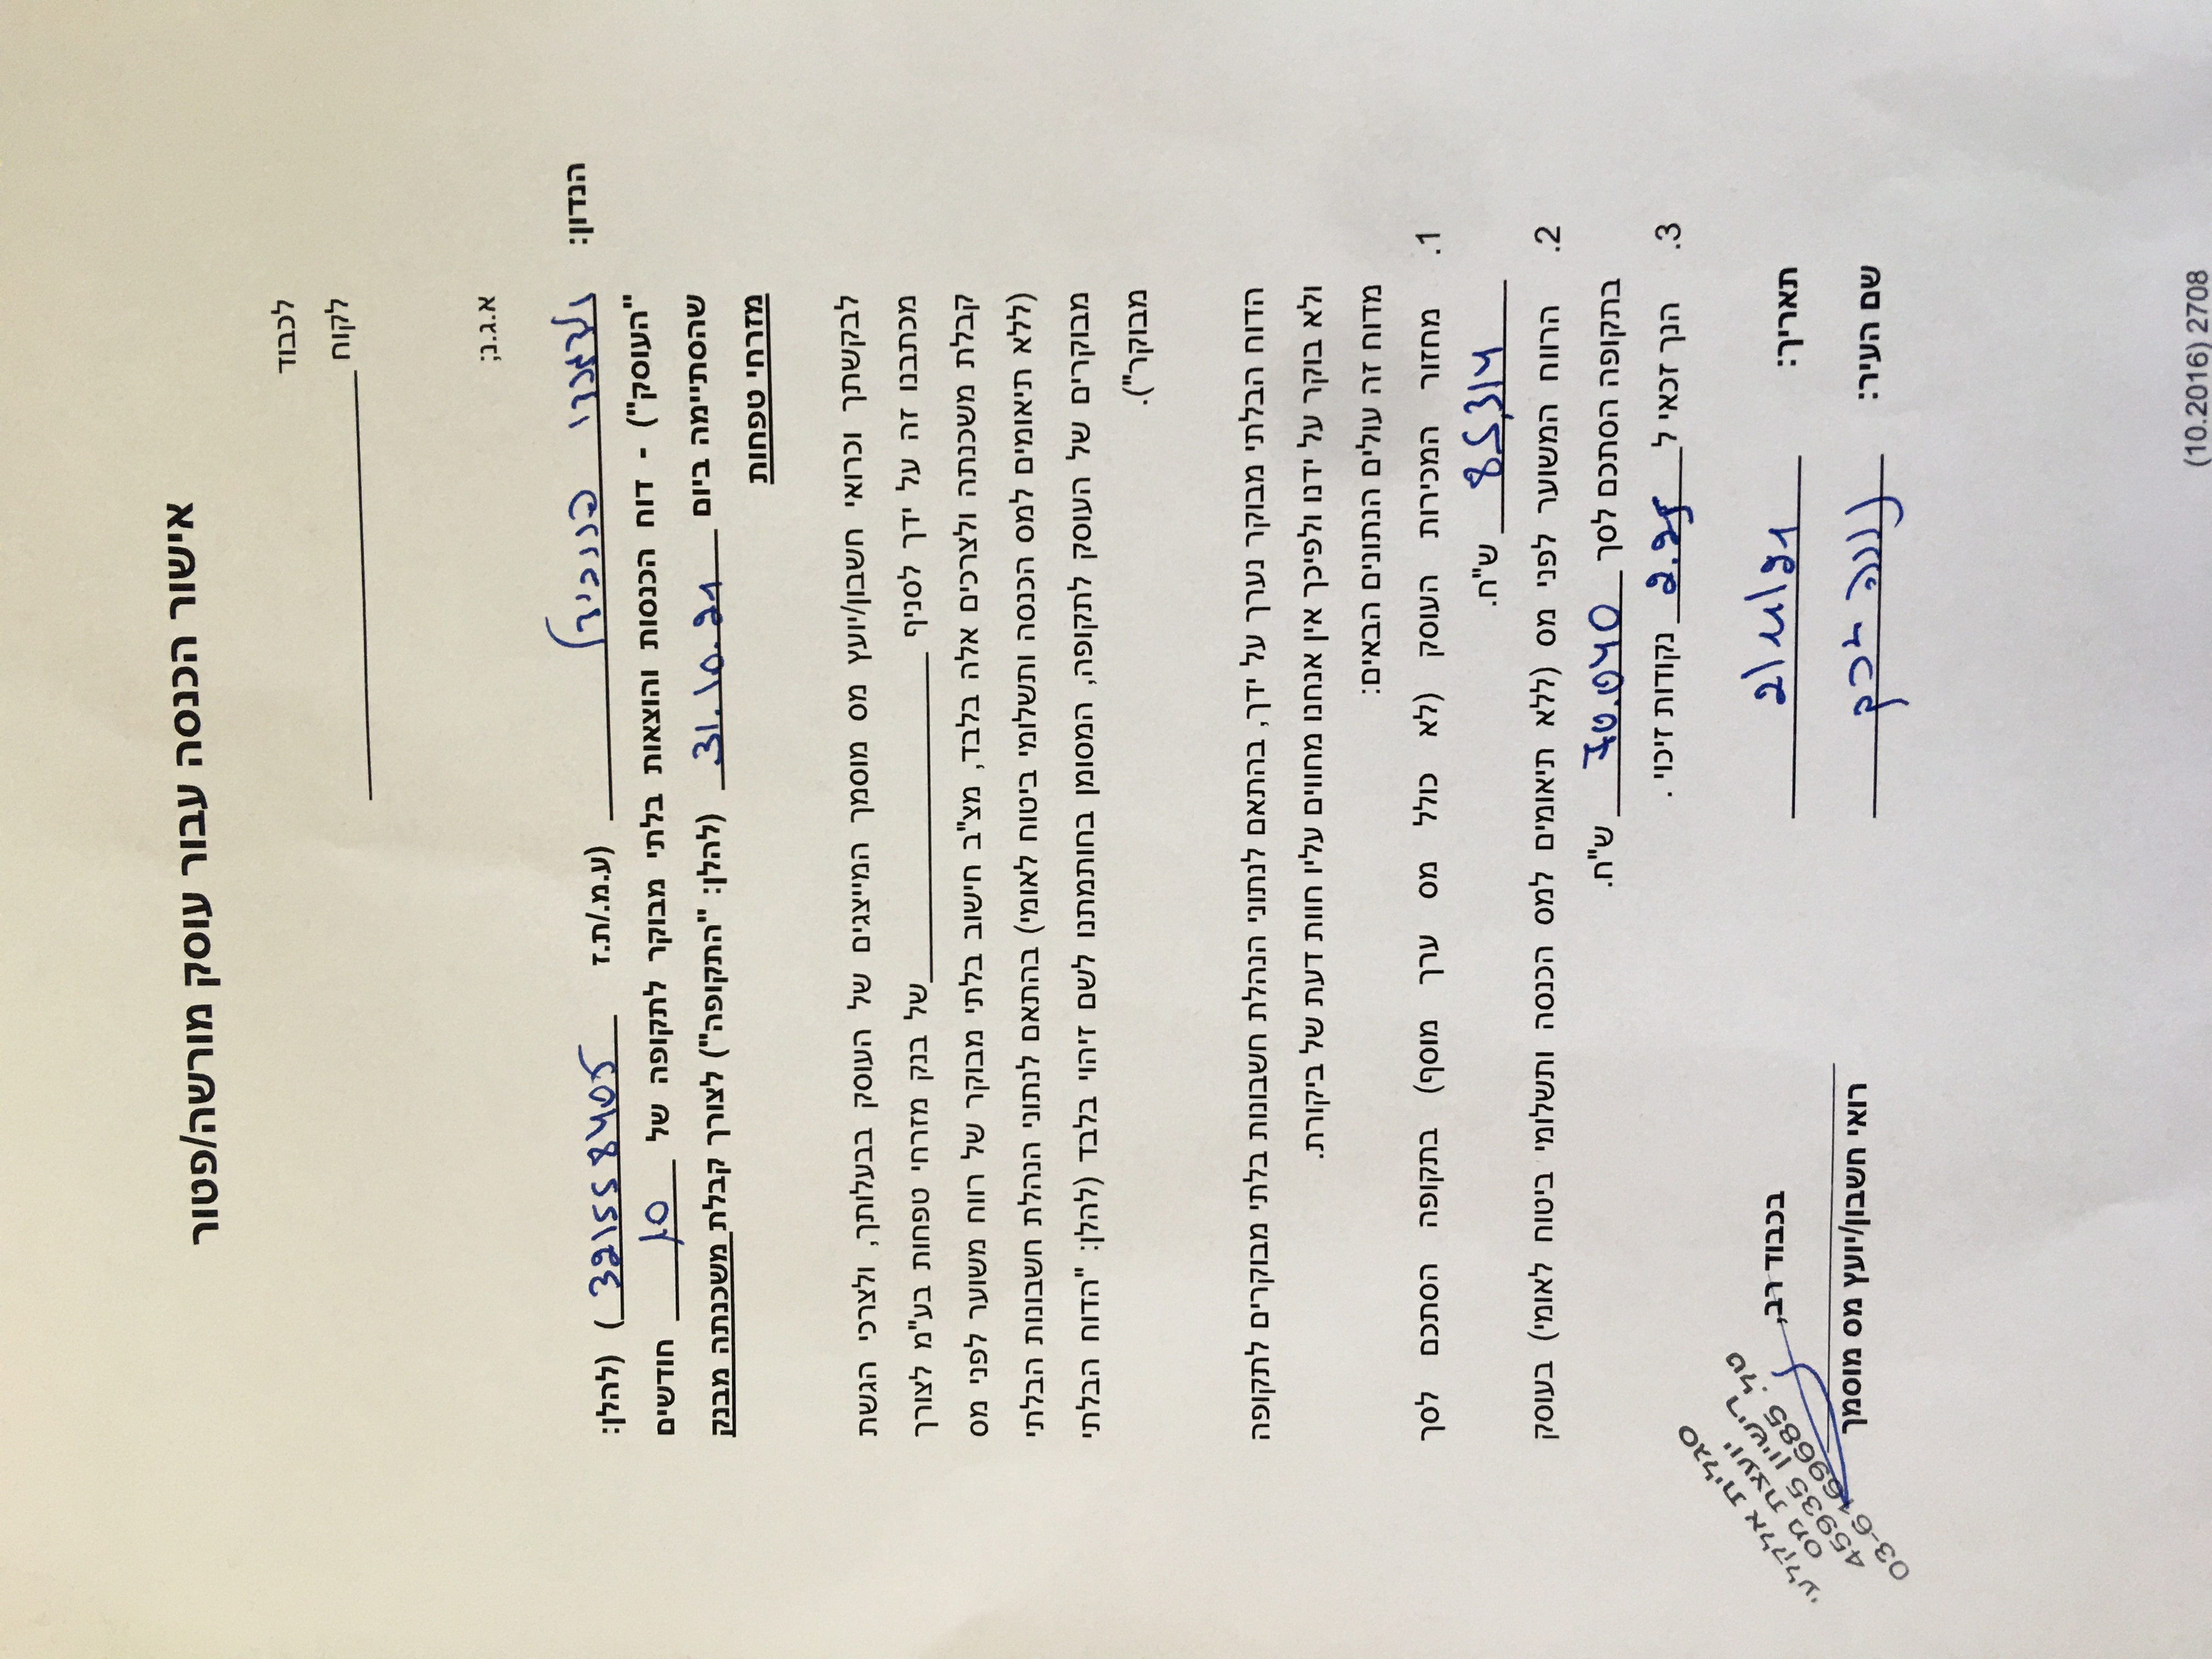 אישור הכנסה עבור עוסק מורשה/פטור
לכבוד
לקוח
א.ג.נ;
הנדון: (ע.מ./ת.ז 321558405) (להלן:
"העוסק") - דוח הכנסות והוצאות בלתי מבוקר לתקופה של 10 חודשים
שהסתיימה ביום 31.10.21 (להלן: "התקופה") לצורך קבלת משכנתה מבנק
מזרחי טפחות
לבקשתך וכרואי חשבון/יועץ מס מוסמך המייצגים של העוסק בבעלותך, ולצרכי הגשת
מכתבנו זה על ידך לסניף של בנק מזרחי טפחות בע"מ לצורך
קבלת משכנתה ולצרכים אלה בלבד, מצ"ב חישוב בלתי מבוקר של רווח משוער לפני מס
(ללא תיאומים למס הכנסה ותשלומי ביטוח לאומי) בהתאם לנתוני הנהלת חשבונות הבלתי
מבוקרים של העוסק לתקופה, המסומן בחותמתנו לשם זיהוי בלבד (להלן: "הדוח הבלתי
מבוקר").
הדוח הבלתי מבוקר נערך על ידך, בהתאם לנתוני הנהלת חשבונות בלתי מבוקרים לתקופה
ולא בוקר על ידנו ולפיכך אין אנחנו מחווים עליו חוות דעת של ביקורת.
מדוח זה עולים הנתונים הבאים:
1. מחזור המכירות העוסק (לא כולל מס ערך מוסף) בתקופה הסתכם לסך
85,314 ש"ח.
2. הרווח המשוער לפני מס (ללא תיאומים למס הכנסה ותשלומי ביטוח לאומי) בעוסק
בתקופה הסתכם לסך 70.040 ש"ח.
3. הנך זכאי ל 2.25 נקודות זיכוי .
תאריך: 2/11/21 בכבוד רב,
שם העיר: רואי חשבון/יועץ מס מוסמך
סגלית אלקלעי
יועצת מס
רישיון 45935
טל. 03-6169685
2708 (10.2016)